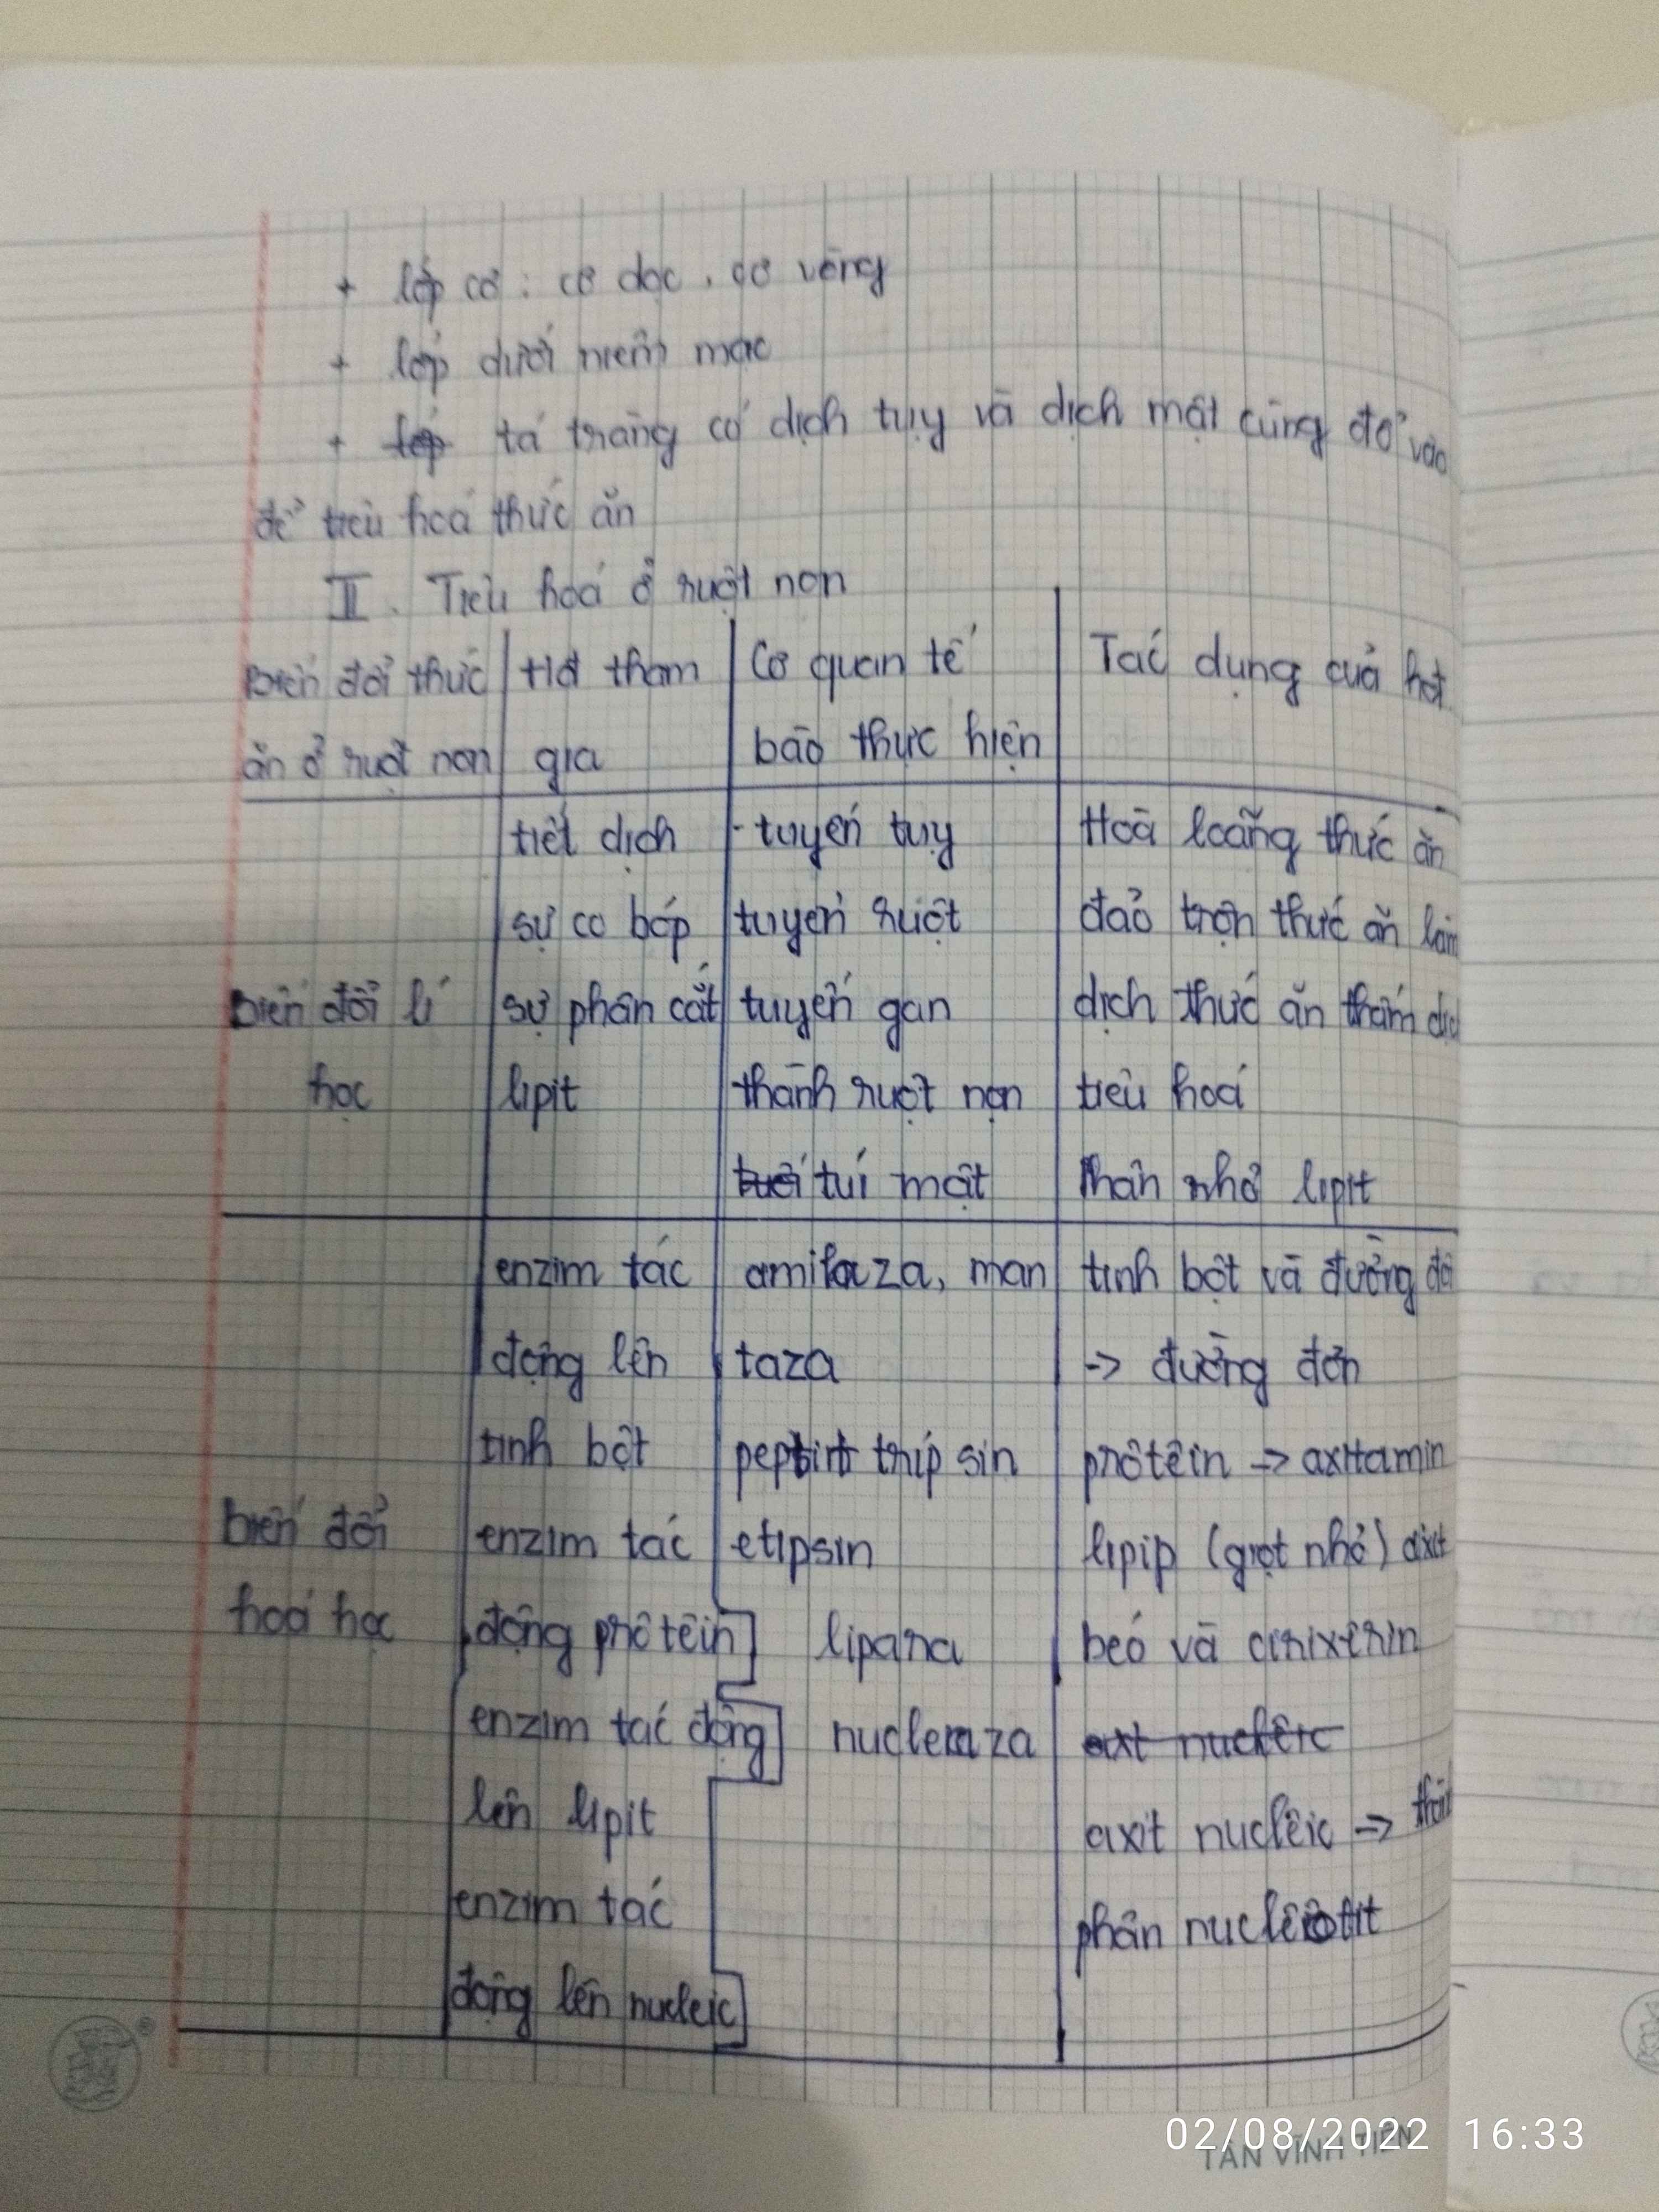 + lớp cơ : cơ dọc , cơ vòng
+ lớp dưới niêm mạc
+ lớp tá tràng có dịch tuỵ và dịch mật cùng đổ vào
để tiêu hoá thức ăn
II. Tiêu hoá ở ruột non
Biến đổi thức
ăn ở ruột non
HĐ tham
gia
Cơ quan tế
bào thực hiện
Tác dụng của hđ
Biến đổi lí
học
tiết dịch
sự co bóp
sự phân cắt
lipit
- tuyến tuỵ
tuyến ruột
tuyến gan
thành ruột non
túi mật
Hoà loãng thức ăn
đảo trộn thức ăn làm
dịch thức ăn thấm
tiêu hoá
Phân nhỏ lipit
biến đổi
hoá học
enzim tác
động lên
tinh bột
enzim tác
động prôtêin
enzim tác động
lên lipit
enzim tác
động lên nucleic
amilaza, man
taza
trip sin
etipsin
lipara
nucleaza
tinh bột và đường
-> đường đơn
prôtêin -> axitamin
lipip (giọt nhỏ) axit
béo và
axit nuclêic
axit nuclêic ->
phần nuclêotit
02/08/2022 16:33
TÂN VĨNH TIẾN